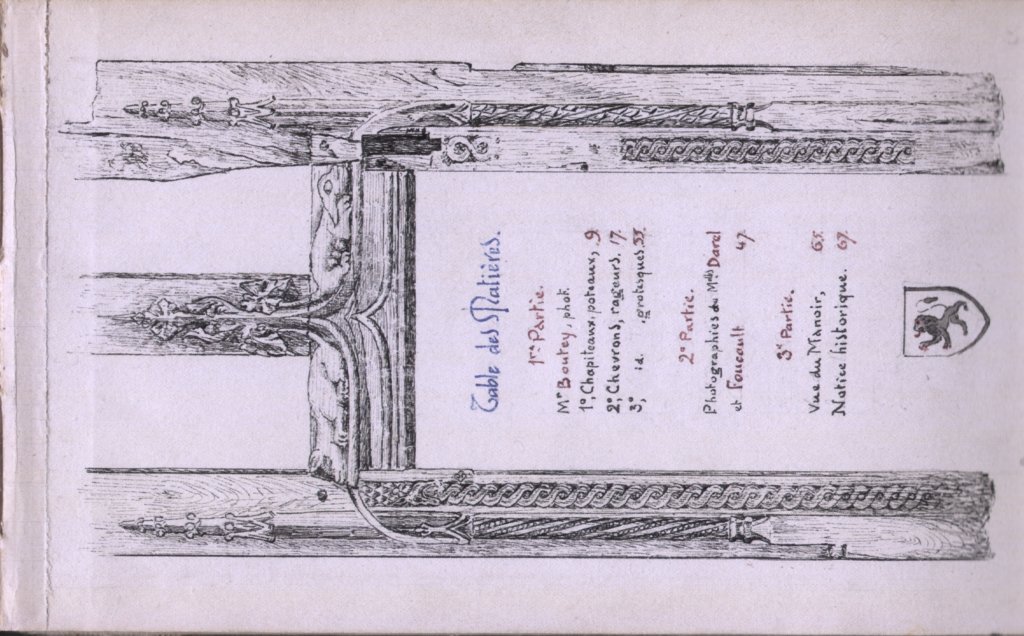 Table des Matières.
1re Partie.
Mr Boutey, phot.
1°, Chapiteaux, poteaux, 9.
2°, Chevrons, rageurs. 17.
3°, id. grotesques. 35.
2e Partie.
Photographies de Mrs Darel
et Foucault 47.
3e Partie.
Vue du Manoir, 65.
Notice historique. 67.